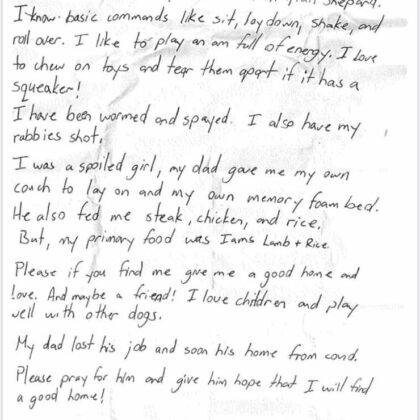 Shepard.
I know basic commands like sit, lay down, shake, and
roll over. I like to play an am full of energy. I love
to chew on toys and tear them apart if it has a
squeaker!
I have been wormed and spayed. I also have my
rabbies shot.
I was a spoiled girl, my dad gave me my own
couch to lay on and my own memory foam bed.
He also fed me steak, chicken, and rice.
But, my primary food was Iams Lamb + Rice
Please if you find me give me a good home and
love. And maybe a friend! I love children and play
well with other dogs.
My dad lost his job and soon his home from covid.
Please pray for him and give him hope that I will find
a good home!